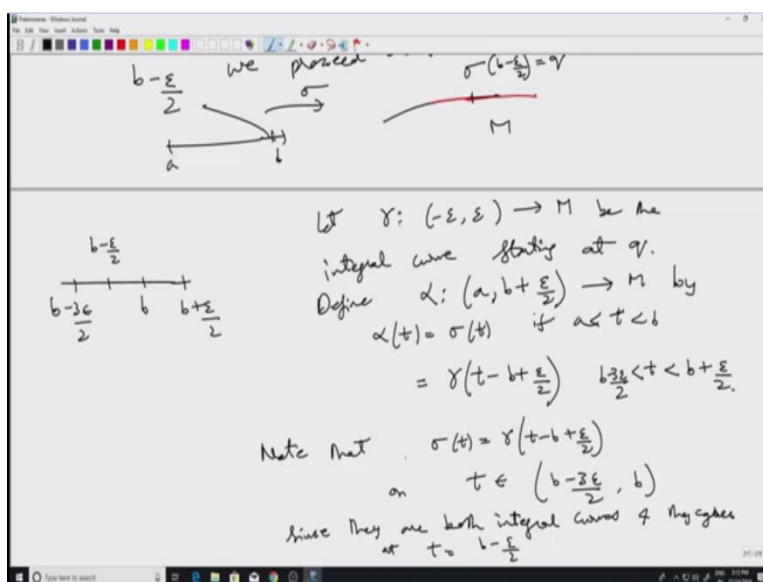 Preliminaries - Windows Journal
File Edit View Insert Actions Tools Help
we proceed
b-ε/2
σ
σ(b-ε/2)=q
a
b
M
Let γ: (-ε,ε) → M be the
integral curve starting at q.
b-ε/2
b-3ε/2 b b+ε/2
Define α: (a, b+ε/2) → M by
α(t) = σ(t) if a< t <b
= γ(t-b+ε/2) b-3ε/2 <t < b+ε/2.
Note that σ(t) = γ(t-b+ε/2)
on t ∈ (b-3ε/2, b)
Since they are both integral curves & they agree
at t= b-ε/2
Type here to search
3:12 PM